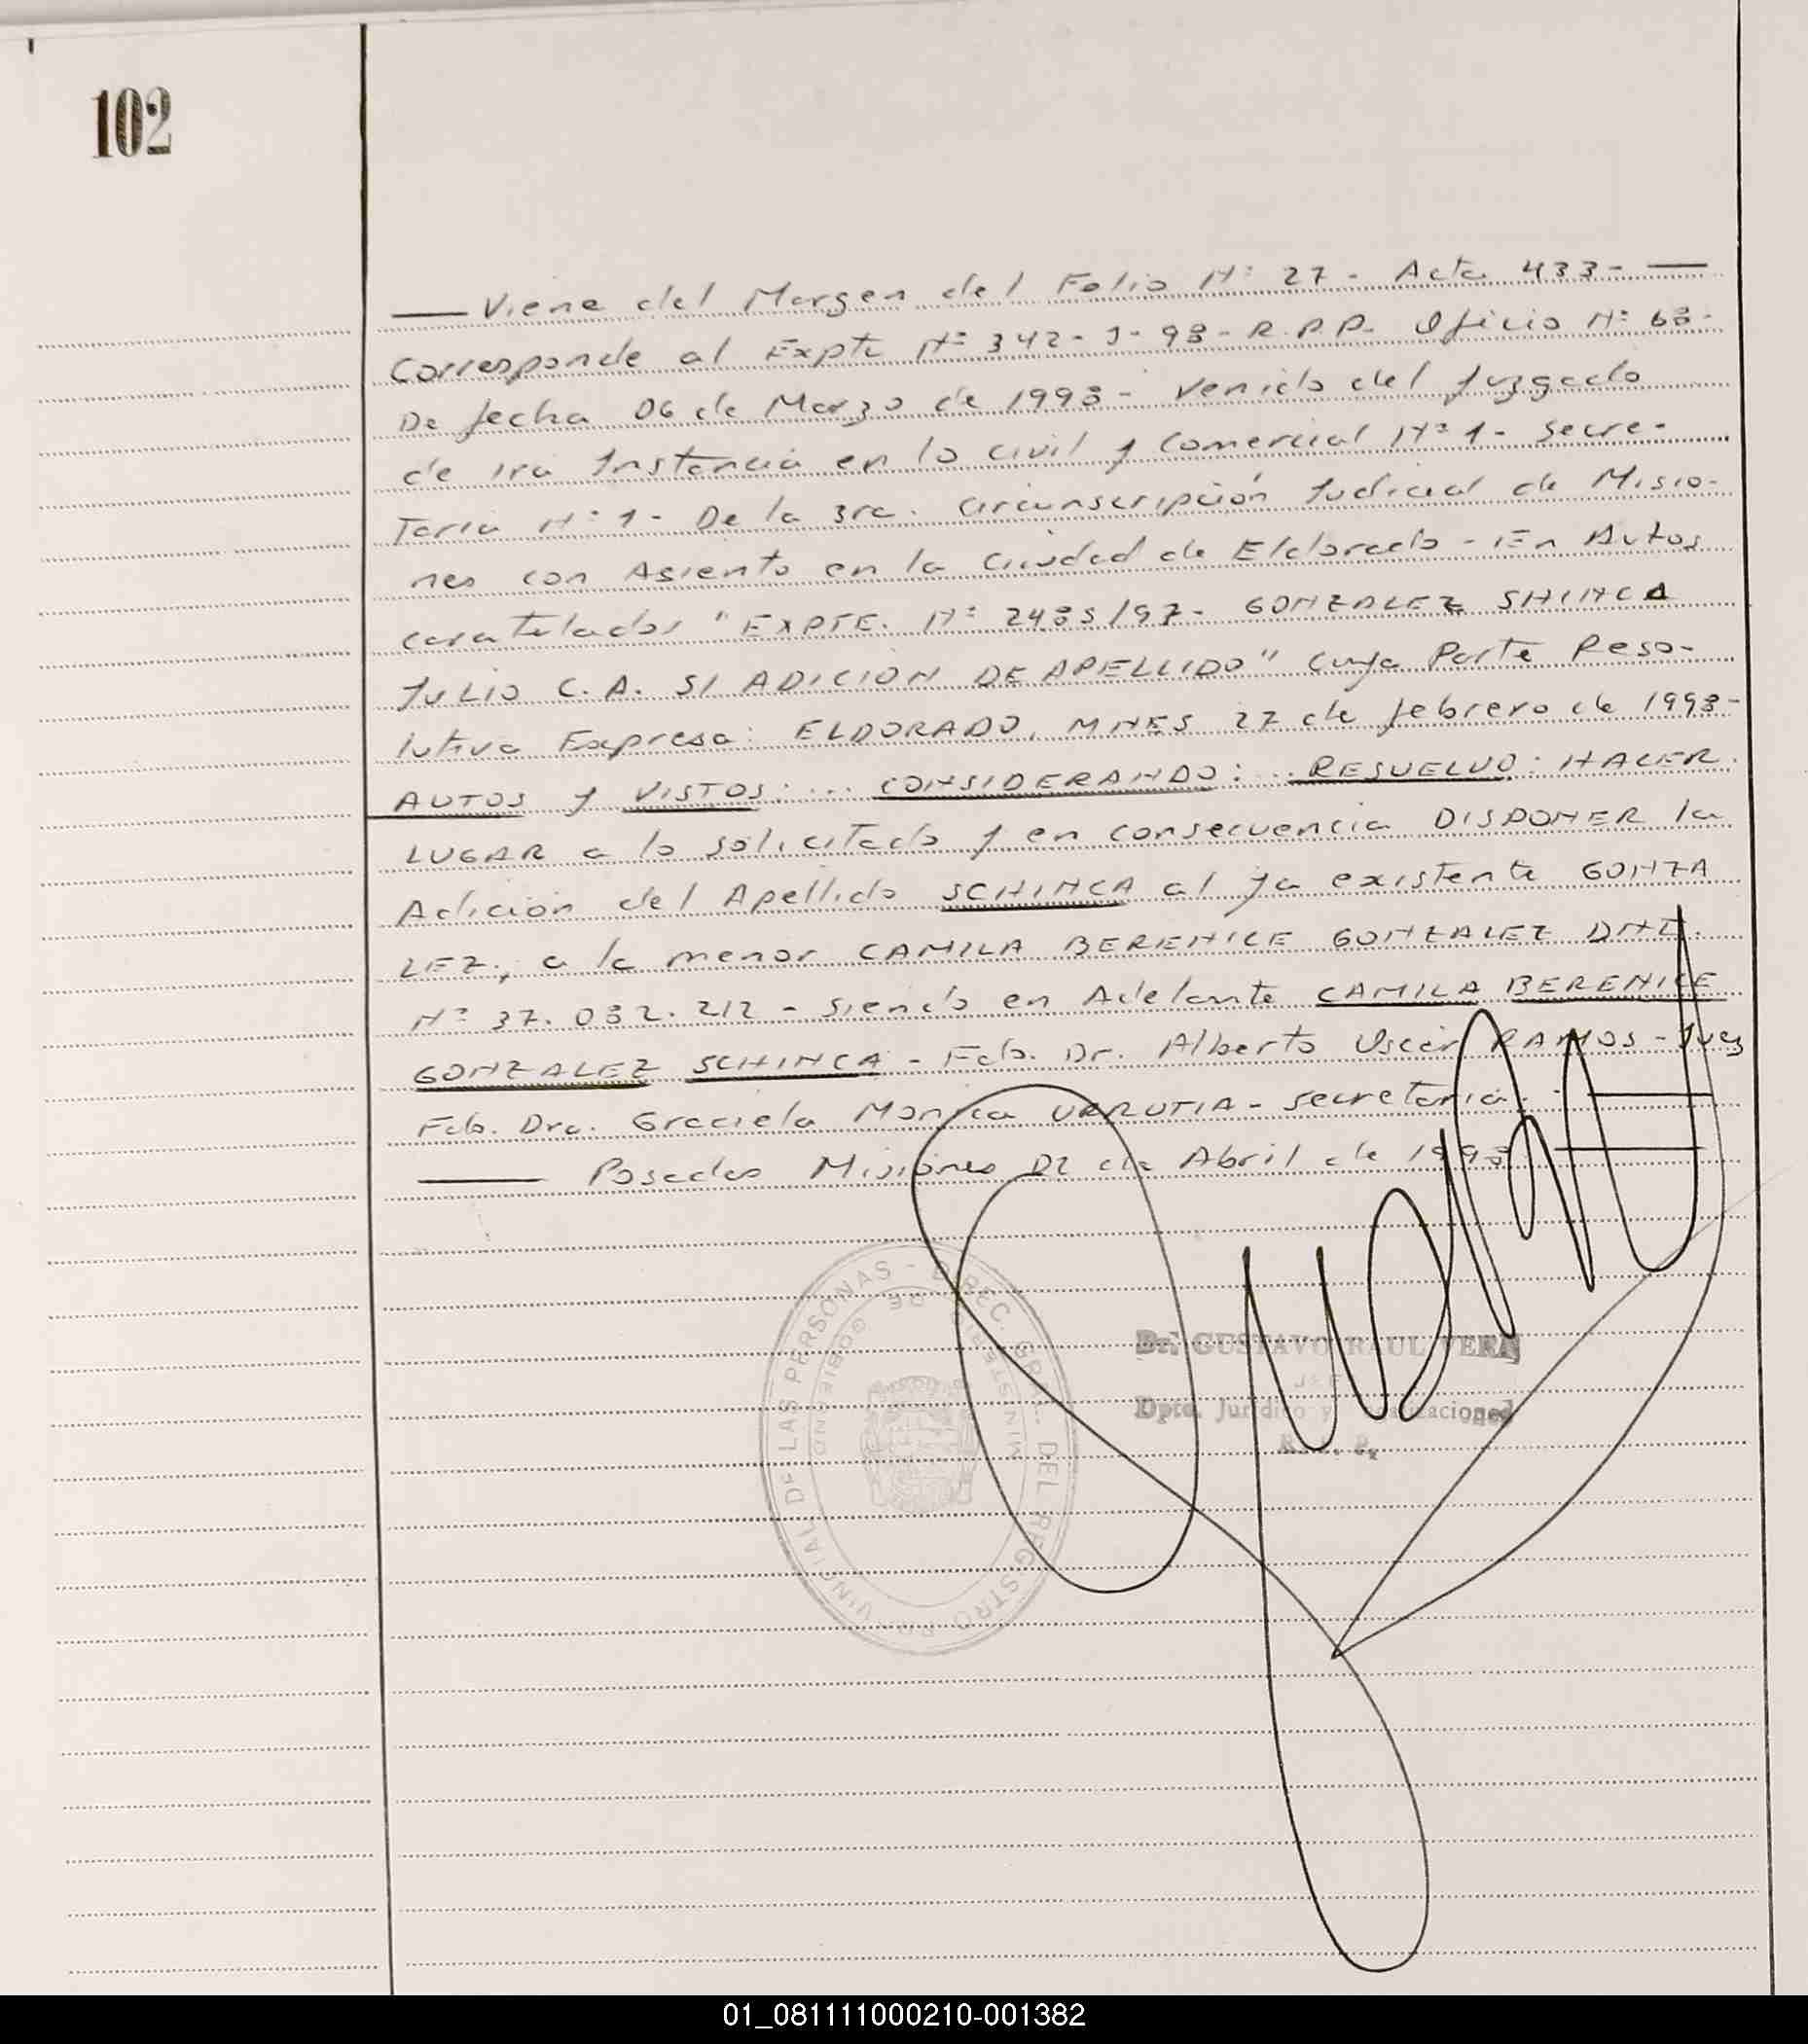 102
Viene del Margen del Folio Nº 27 - Acta 433 -
Corresponde al Expte Nº 342 - J - 98 - R.P.P. Oficio Nº 68 -
De fecha 06 de Marzo de 1998 - Venido del Juzgado
de 1ra Instancia en lo Civil y Comercial Nº 1 - Secre-
taria Nº 1 - De la 3ra. Circunscripción Judicial de Misio-
nes con Asiento en la Ciudad de Eldorado - En Autos
caratulados "EXPTE. Nº 2485/97 - GONZALEZ SHINCA
JULIO C. A. S/ ADICION DE APELLIDO" Cuya Parte Reso-
lutiva Expresa: ELDORADO, MNES 27 de febrero de 1998 -
AUTOS y VISTOS: ... CONSIDERANDO: ... RESUELVO: HACER
LUGAR a lo solicitado y en consecuencia DISPONER la
Adición del Apellido SCHINCA al ya existente GONZA
LEZ, a la menor CAMILA BERENICE GONZALEZ DNI.
Nº 37.082.212 - siendo en Adelante CAMILA BERENICE
GONZALEZ SCHINCA - Fdo. Dr. Alberto Oscar RAMOS - Juez
Fdo. Dra. Graciela Monica URRUTIA - secretaria. -
Posadas Misiones 02 de Abril de 1998
PROVINCIAL DE LAS PERSONAS - DIREC. GRAL. DEL REGISTRO
MINISTERIO DE GOBIERNO
Dr. GUSTAVO RAUL VERA
Dpto. Jurídico y
01_081111000210-001382